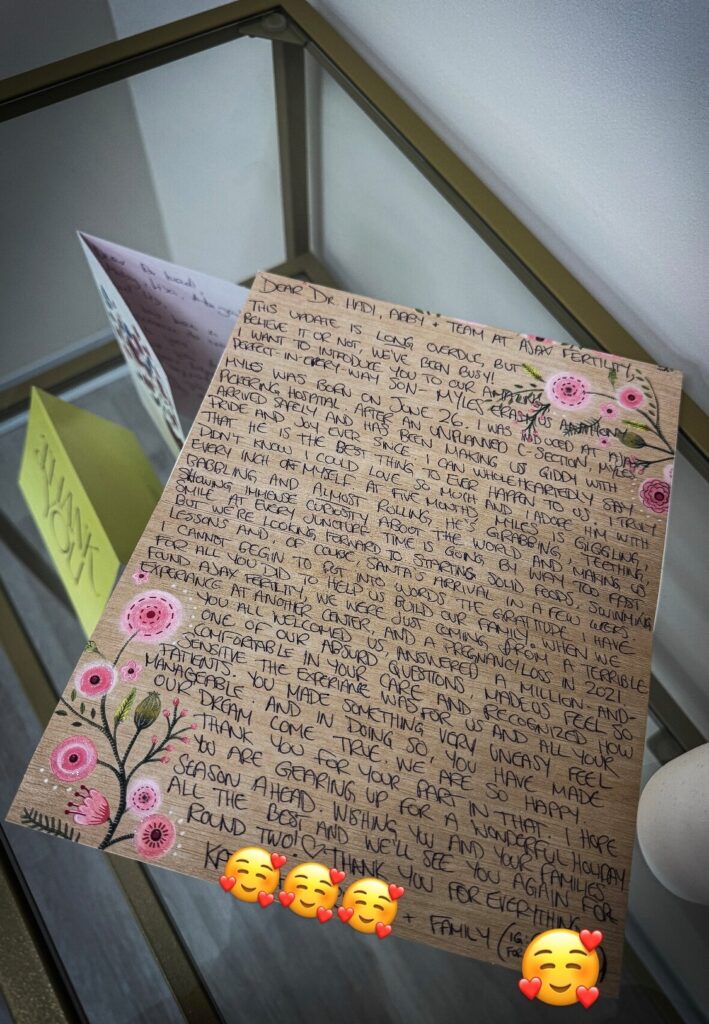 DEAR DR. HADI, ABBY + TEAM AT AJAX FERTILITY,
THIS UPDATE IS LONG OVERDUE, BUT
BELIEVE IT OR NOT, WE'VE BEEN BUSY!
I WANT TO INTRODUCE YOU TO OUR AMAZING
PERFECT-IN-EVERY WAY SON - MYLES
MYLES WAS BORN ON JUNE 26. I WAS INDUCED AT AJAX
PICKERING HOSPITAL AFTER AN UNPLANNED C-SECTION, MYLES
ARRIVED SAFELY AND HAS BEEN MAKING US GIDDY WITH
PRIDE AND JOY EVER SINCE. I CAN WHOLEHEARTEDLY SAY
THAT HE IS THE BEST THING TO EVER HAPPEN TO US. I TRULY
DIDN'T KNOW I COULD LOVE SO MUCH AND I ADORE HIM WITH
EVERY INCH OF MYSELF. AT FIVE MONTHS MYLES IS GIGGLING,
BABBLING, AND ALMOST ROLLING, HE'S GRABBING, TEETHING,
SHOWING IMMENSE CURIOSITY ABOUT THE WORLD AND MAKING US
SMILE AT EVERY JUNCTURE. TIME IS GOING BY WAY TOO FAST
BUT WE'RE LOOKING FORWARD TO STARTING SOLID FOODS, SWIMMING
LESSONS AND OF COURSE, SANTA'S ARRIVAL IN A FEW WEEKS.
I CANNOT BEGIN TO PUT INTO WORDS, THE GRATITUDE I HAVE
FOR ALL YOU DID TO HELP US BUILD OUR FAMILY. WHEN WE
FOUND AJAX FERTILITY, WE WERE JUST COMING FROM A TERRIBLE
EXPERIENCE AT ANOTHER CENTER, AND A PREGNANCY LOSS IN 2021
YOU ALL WELCOMED US, ANSWERED A MILLION-AND-
ONE OF OUR ABSURD QUESTIONS, MADE US FEEL SO
COMFORTABLE IN YOUR CARE AND RECOGNIZED HOW
SENSITIVE THE EXPERIENCE WAS FOR US AND ALL YOUR
PATIENTS. YOU MADE SOMETHING VERY UNEASY FEEL
MANAGEABLE. AND IN DOING SO, YOU HAVE MADE
OUR DREAM COME TRUE. WE ARE SO HAPPY.
THANK YOU FOR YOUR PART IN THAT. I HOPE
YOU ARE GEARING UP FOR A WONDERFUL HOLIDAY
SEASON AHEAD. WISHING YOU AND YOUR FAMILIES
ALL THE BEST AND WE'LL SEE YOU AGAIN FOR
ROUND TWO! ♡ THANK YOU FOR EVERYTHING
KA
+ FAMILY (IG:
THANK
YOU